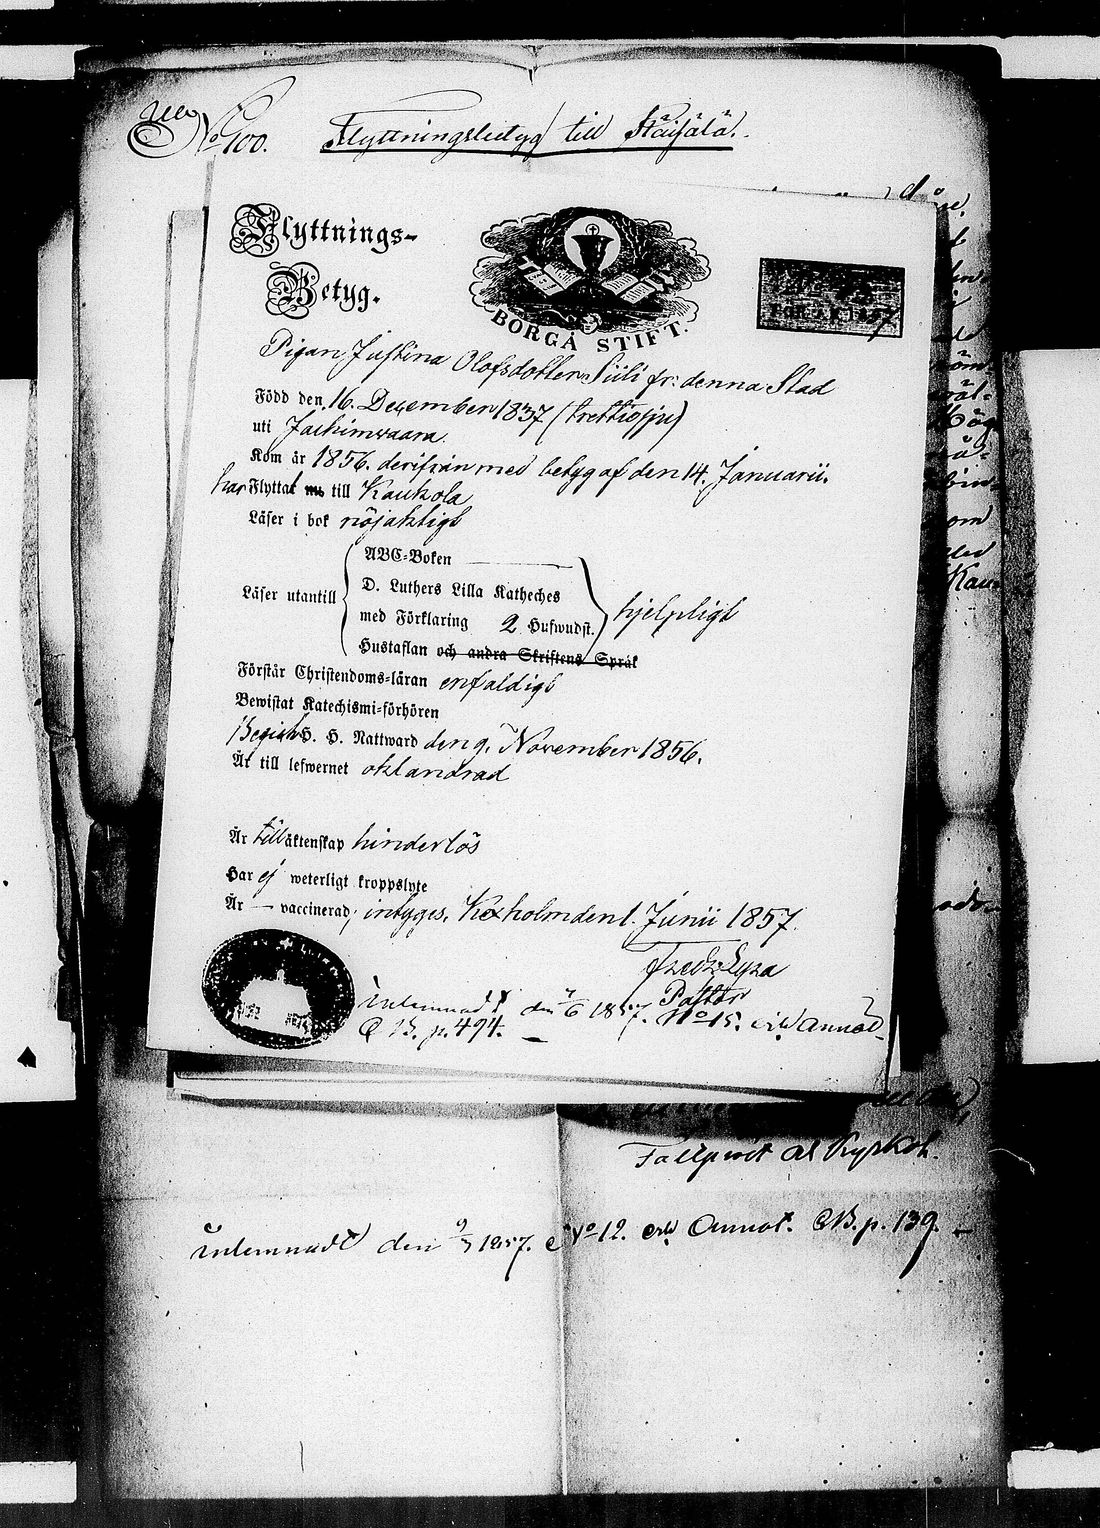 No 100. Flyttningsbetyg till Räisälä.
Flyttnings-
Betyg.
BORGÅ STIFT.
Pigan Justina Olofsdotter Siili fr: denna Stad
Född den 16 December 1837 (trettiosju)
uti Jaakimwaara.
Kom år 1856. derifrån med betyg af den 14. Januarii.
har Flyttat till Kaukola
Läser i bok nöjaktigt
Läser utantill
ABC-Boken
D. Luthers Lilla Katheches
med Förklaring 2 Hufwudst.
Hustaflan och andra Skriftens Språk
hjelpligt
Förstår Christendoms-läran enfaldigt
Bewistat Katechismi-förhören
Begick H. H. Nattward den 9. November 1856.
Är till lefwernet oklandrad
Är till äktenskap hinderlös
Har ej weterligt kroppslyte
Är — vaccinerad; intygas, Kexholm den 1. Junii 1857.
Pastor
Inlemnadt den 7/6 1857. No 15. Annot.
C B. p. 494.
Kyrkoh.
Inlemnadt den 1857. No 12. Annot. CB. p. 139.